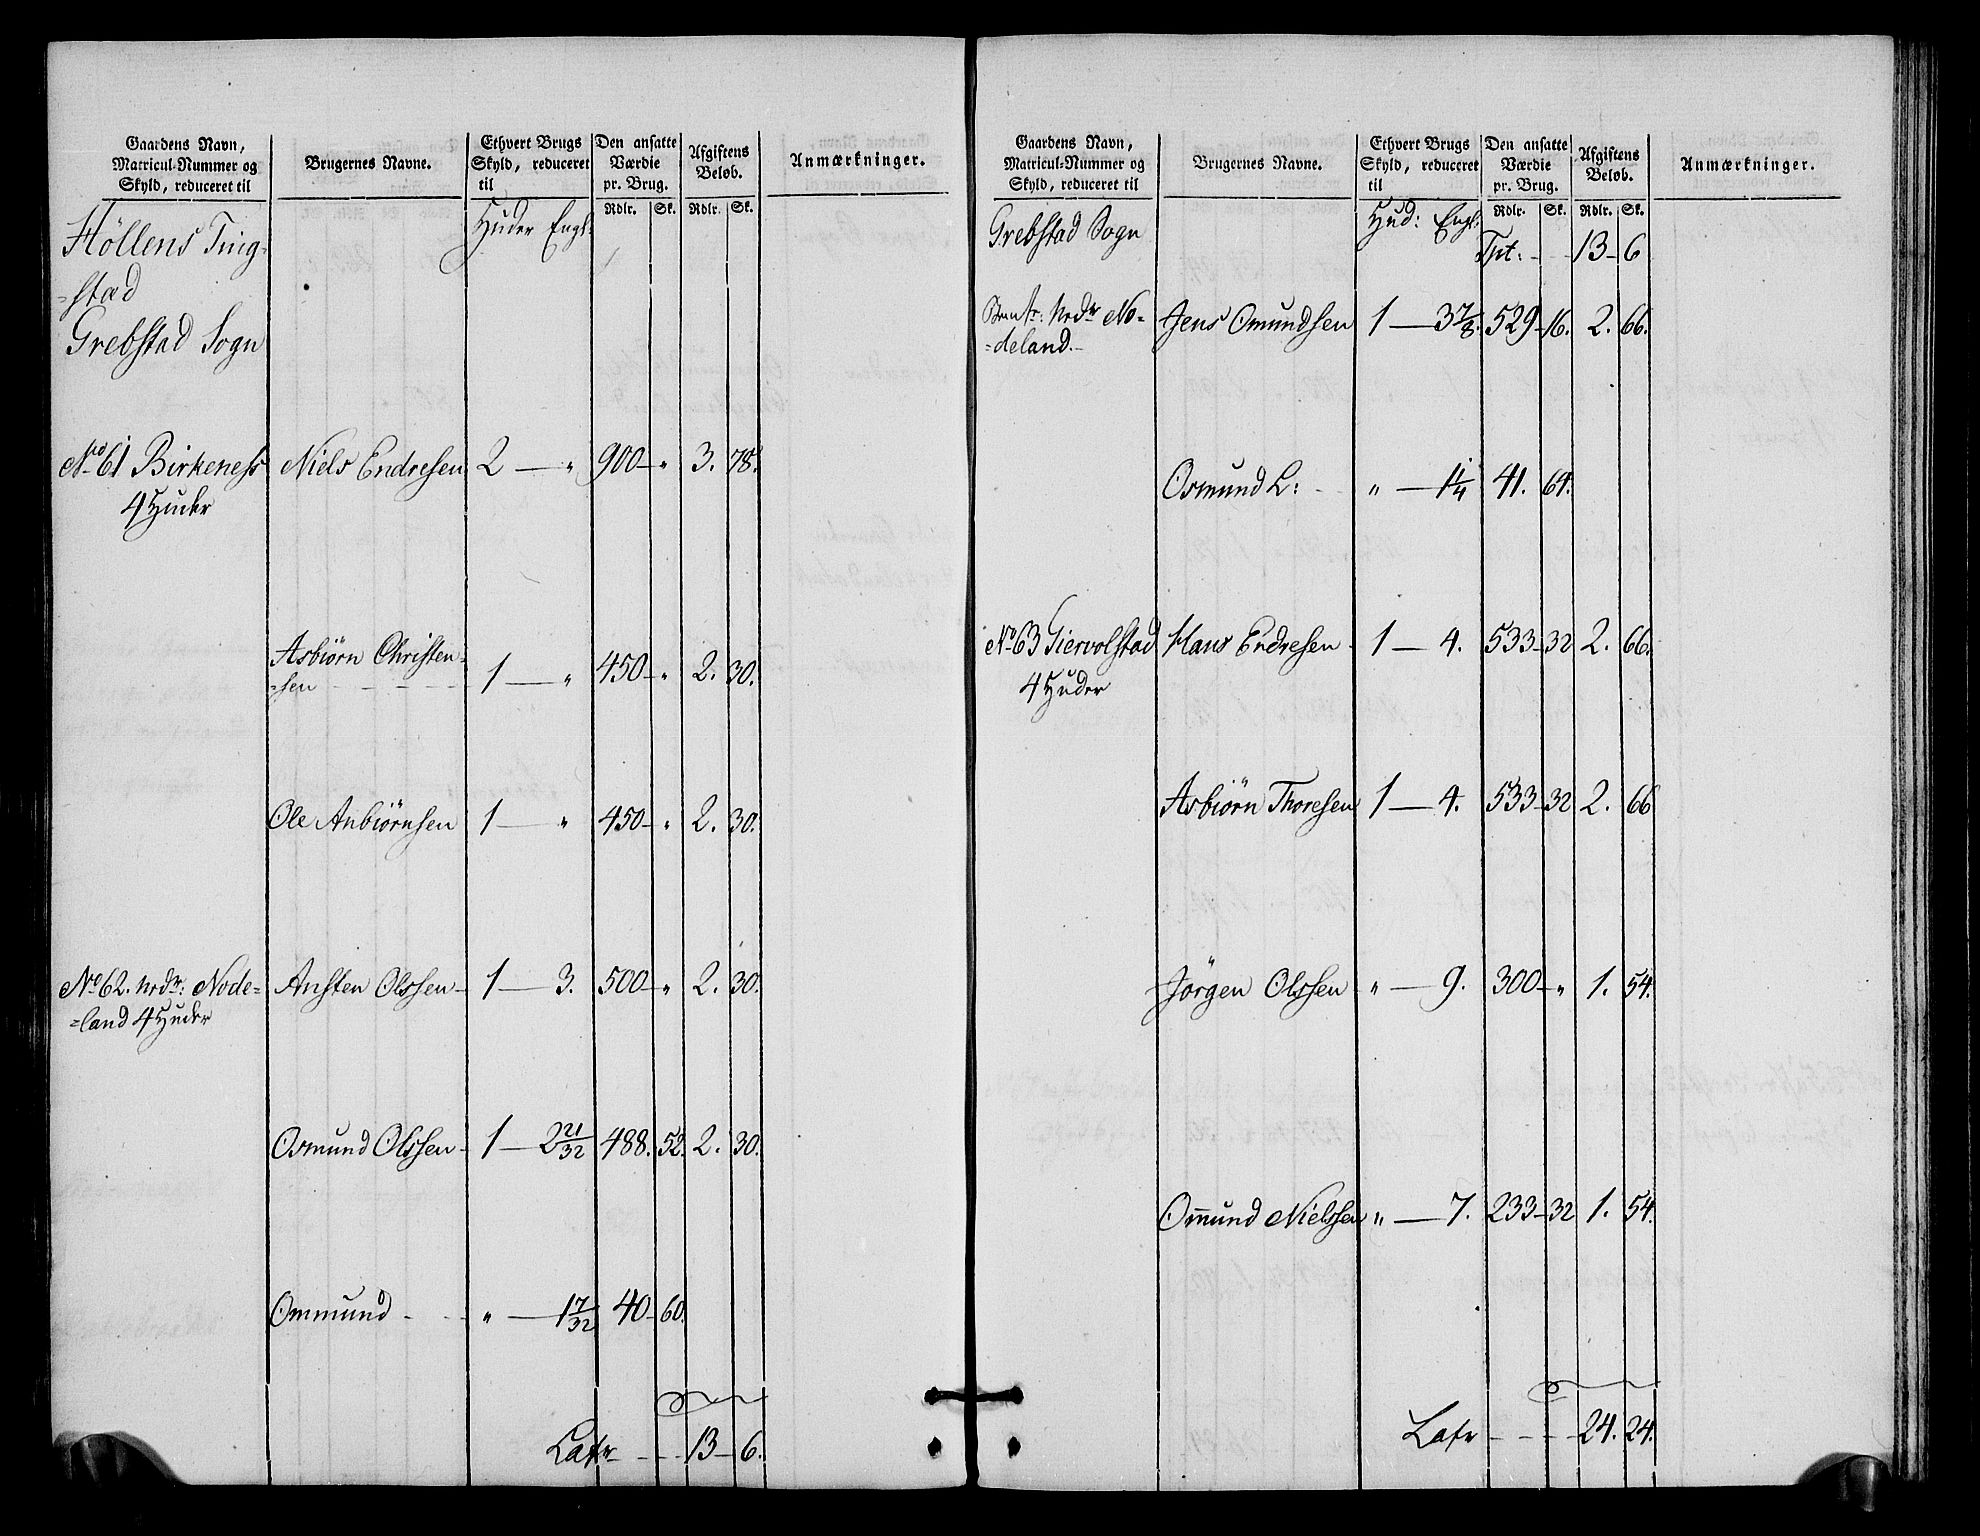 Gaardens Navn, Matricul-Nummer og Skyld, reduceret til
Brugernes Navne.
Ethvert Brugs Skyld, reduceret til
Den ansatte Værdie pr. Brug.
Afgiftens Beløb.
Anmærkninger.
Huder Engl: Rdlr. Sk. Rdlr. Sk.
Höllens Ting-
=stad
Grebstad Sogn
No 61 Birkeness Niels Endresen 2 — " 900 — " 3. 78.
4 Huder
Asbiörn Christen=
=sen - - - - - 1 — " 450 — " 2. 30.
Ole Anbiörnsen 1 — " 450 — " 2. 30.
No 62. Nedr: Node= Ansten Olssen — 1 — 3. 500 — " 2. 30.
=land 4 Huder
Osmund Olssen — 1 — 2 21/32 488. 52. 2. 30.
Ommund - - " — 1 7/32 40 — 60.
Latr - - - 13 — 6.
Gaardens Navn, Matricul-Nummer og Skyld, reduceret til
Brugernes Navne.
Ethvert Brugs Skyld, reduceret til
Den ansatte Værdie pr. Brug.
Afgiftens Beløb.
Anmærkninger.
Hud: Engl: Rdlr. Sk. Rdlr. Sk.
Grebstad Sogn
Tpt: - - - 13 — 6
Nedr No- Jens Omundsen 1 — 3 7/8. 529 — 16. 2. 66.
=deland. —
Osmund L: - - " — 1 1/4 41. 64.
No 63 Tiervolstad Hans Endresen - 1 — 4. 533 — 32 2. 66.
4 Huder
Asbiörn Thoresen 1 — 4. 533 — 32 2. 66
Jörgen Olssen " — 9. 300 — " 1. 54.
Om̅und Nielssen " — 7. 233 — 32 1. 54.
Latr - - - - 24. 24.